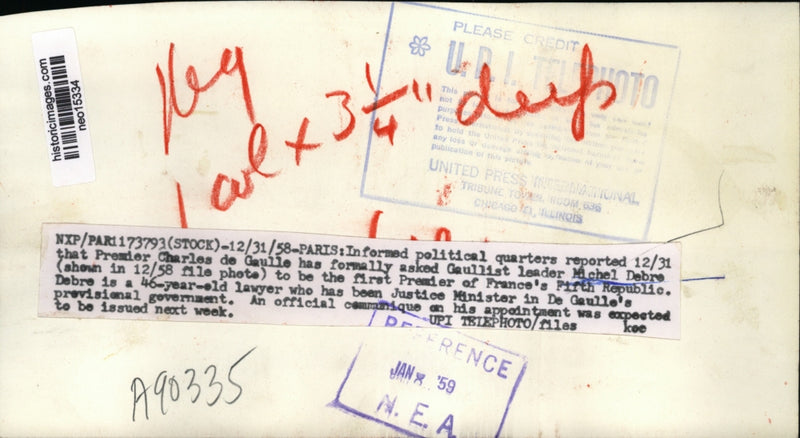 historicimages.com
neo15334
reg
1 col x 3 1/4" deep
PLEASE CREDIT
U. P. I. TELEPHOTO
This
not
Press
to hold the United
any loss or
publication of this
UNITED PRESS INTERNATIONAL
TRIBUNE TOWER, ROOM 636
CHICAGO 11, ILLINOIS
NXP/PAR1173793(STOCK)-12/31/58-PARIS:Informed political quarters reported 12/31
that Premier Charles de Gaulle has formally asked Gaullist leader Michel Debre
(shown in 12/58 file photo) to be the first Premier of France's Fifth Republic.
Debre is a 46-year-old lawyer who has been Justice Minister in De Gaulle's
provisional government. An official communique on his appointment was expected
to be issued next week. UPI TELEPHOTO/files kee
REFERENCE
JAN 8 '59
N. E. A.
A90335